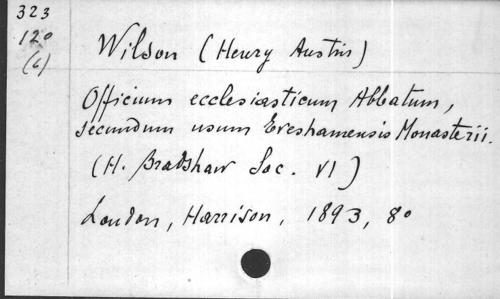 323
12º
(6)
Wilson (Henry Austin)
Officium ecclesiasticum Abbatum,
secundum usum Eveshamensis Monasterii.
(H. Bradshaw Soc. VI)
London, Harrison, 1893, 8º